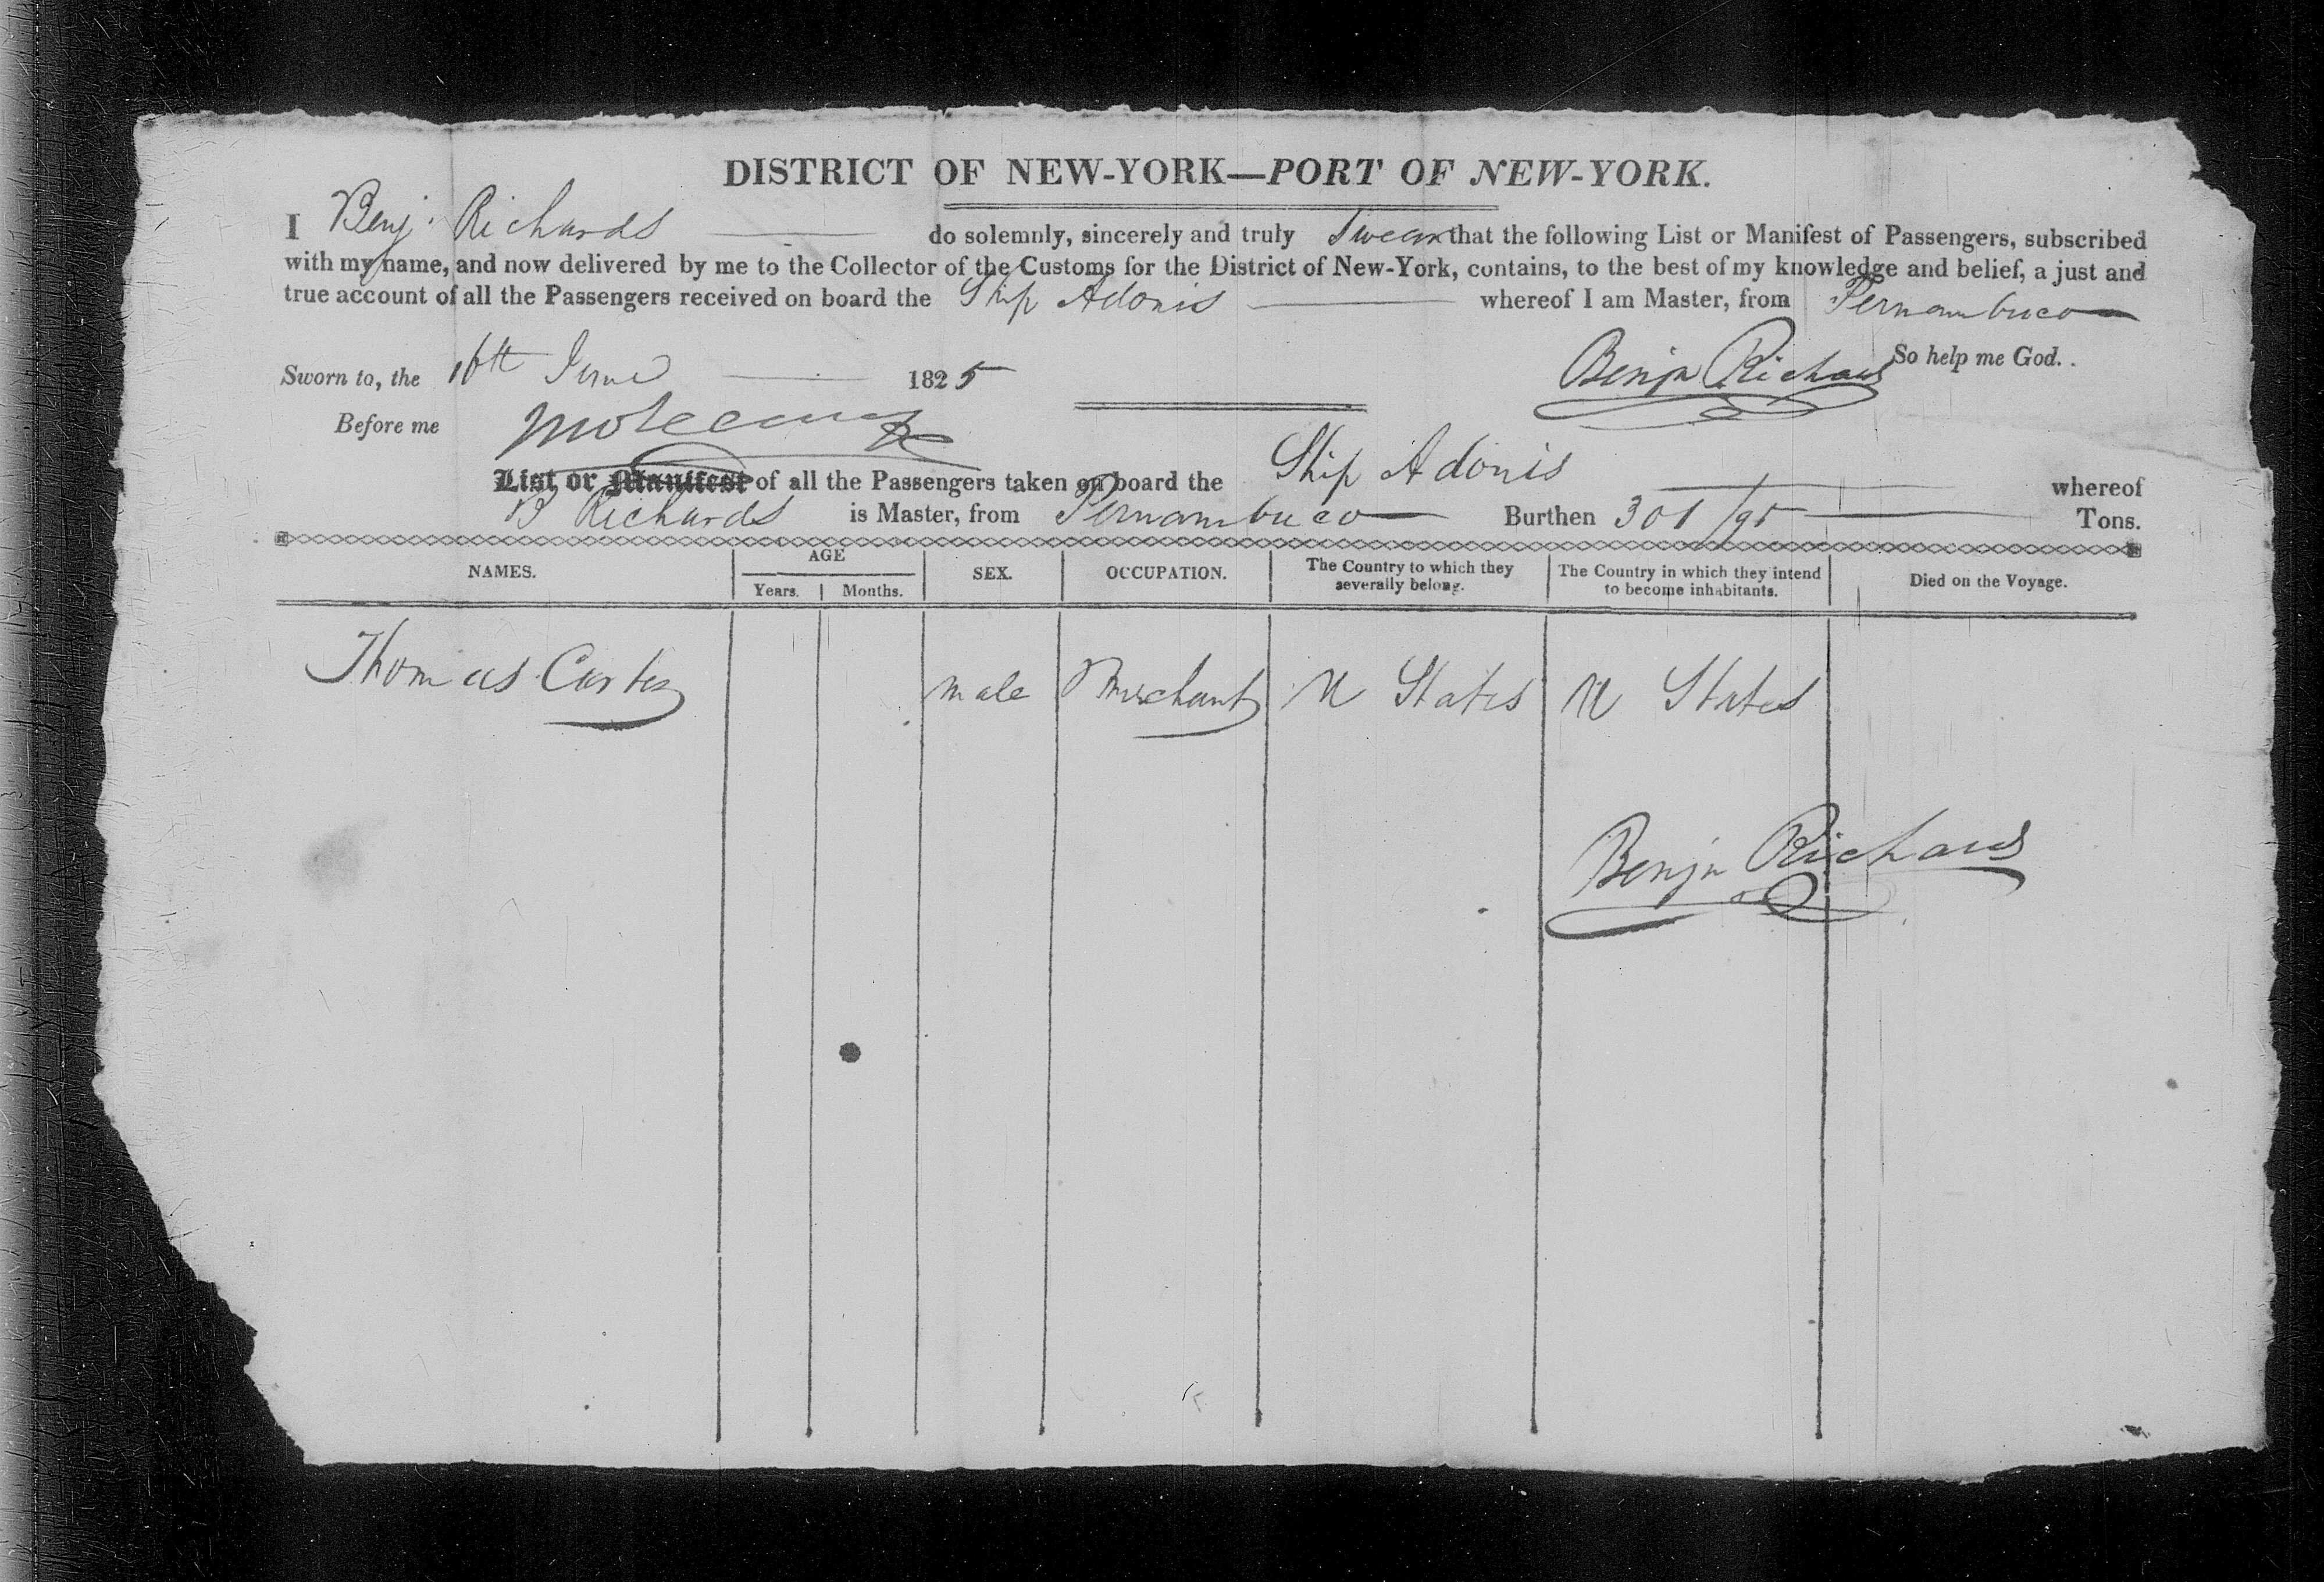 DISTRICT OF NEW-YORK—PORT OF NEW-YORK.
I Benj. Richards do solemnly, sincerely and truly Swear that the following List or Manifest of Passengers, subscribed
with my name, and now delivered by me to the Collector of the Customs for the District of New-York, contains, to the best of my knowledge and belief, a just and
true account of all the Passengers received on board the Ship Adonis whereof I am Master, from Pernambuco
So help me God.
Sworn to, the 16th June 1825 Benjn Richards
Before me
List or Manifest of all the Passengers taken on board the Ship Adonis whereof
B Richards is Master, from Pernambuco Burthen 301/95 Tons.
NAMES. AGE Years. Months. SEX. OCCUPATION. The Country to which they severally belong. The Country in which they intend to become inhabitants. Died on the Voyage.
Thomas Carter male Merchant U States U States
Benjn Richards